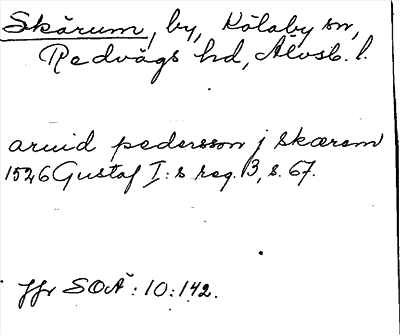 Skärum, by, Kölaby sn,
Redvägs hd, Älvsb. l.
arvid pedersson j skærem
1526 Gustaf I:s reg. 3, s. 67.
Jfr SOÄ: 10:142.